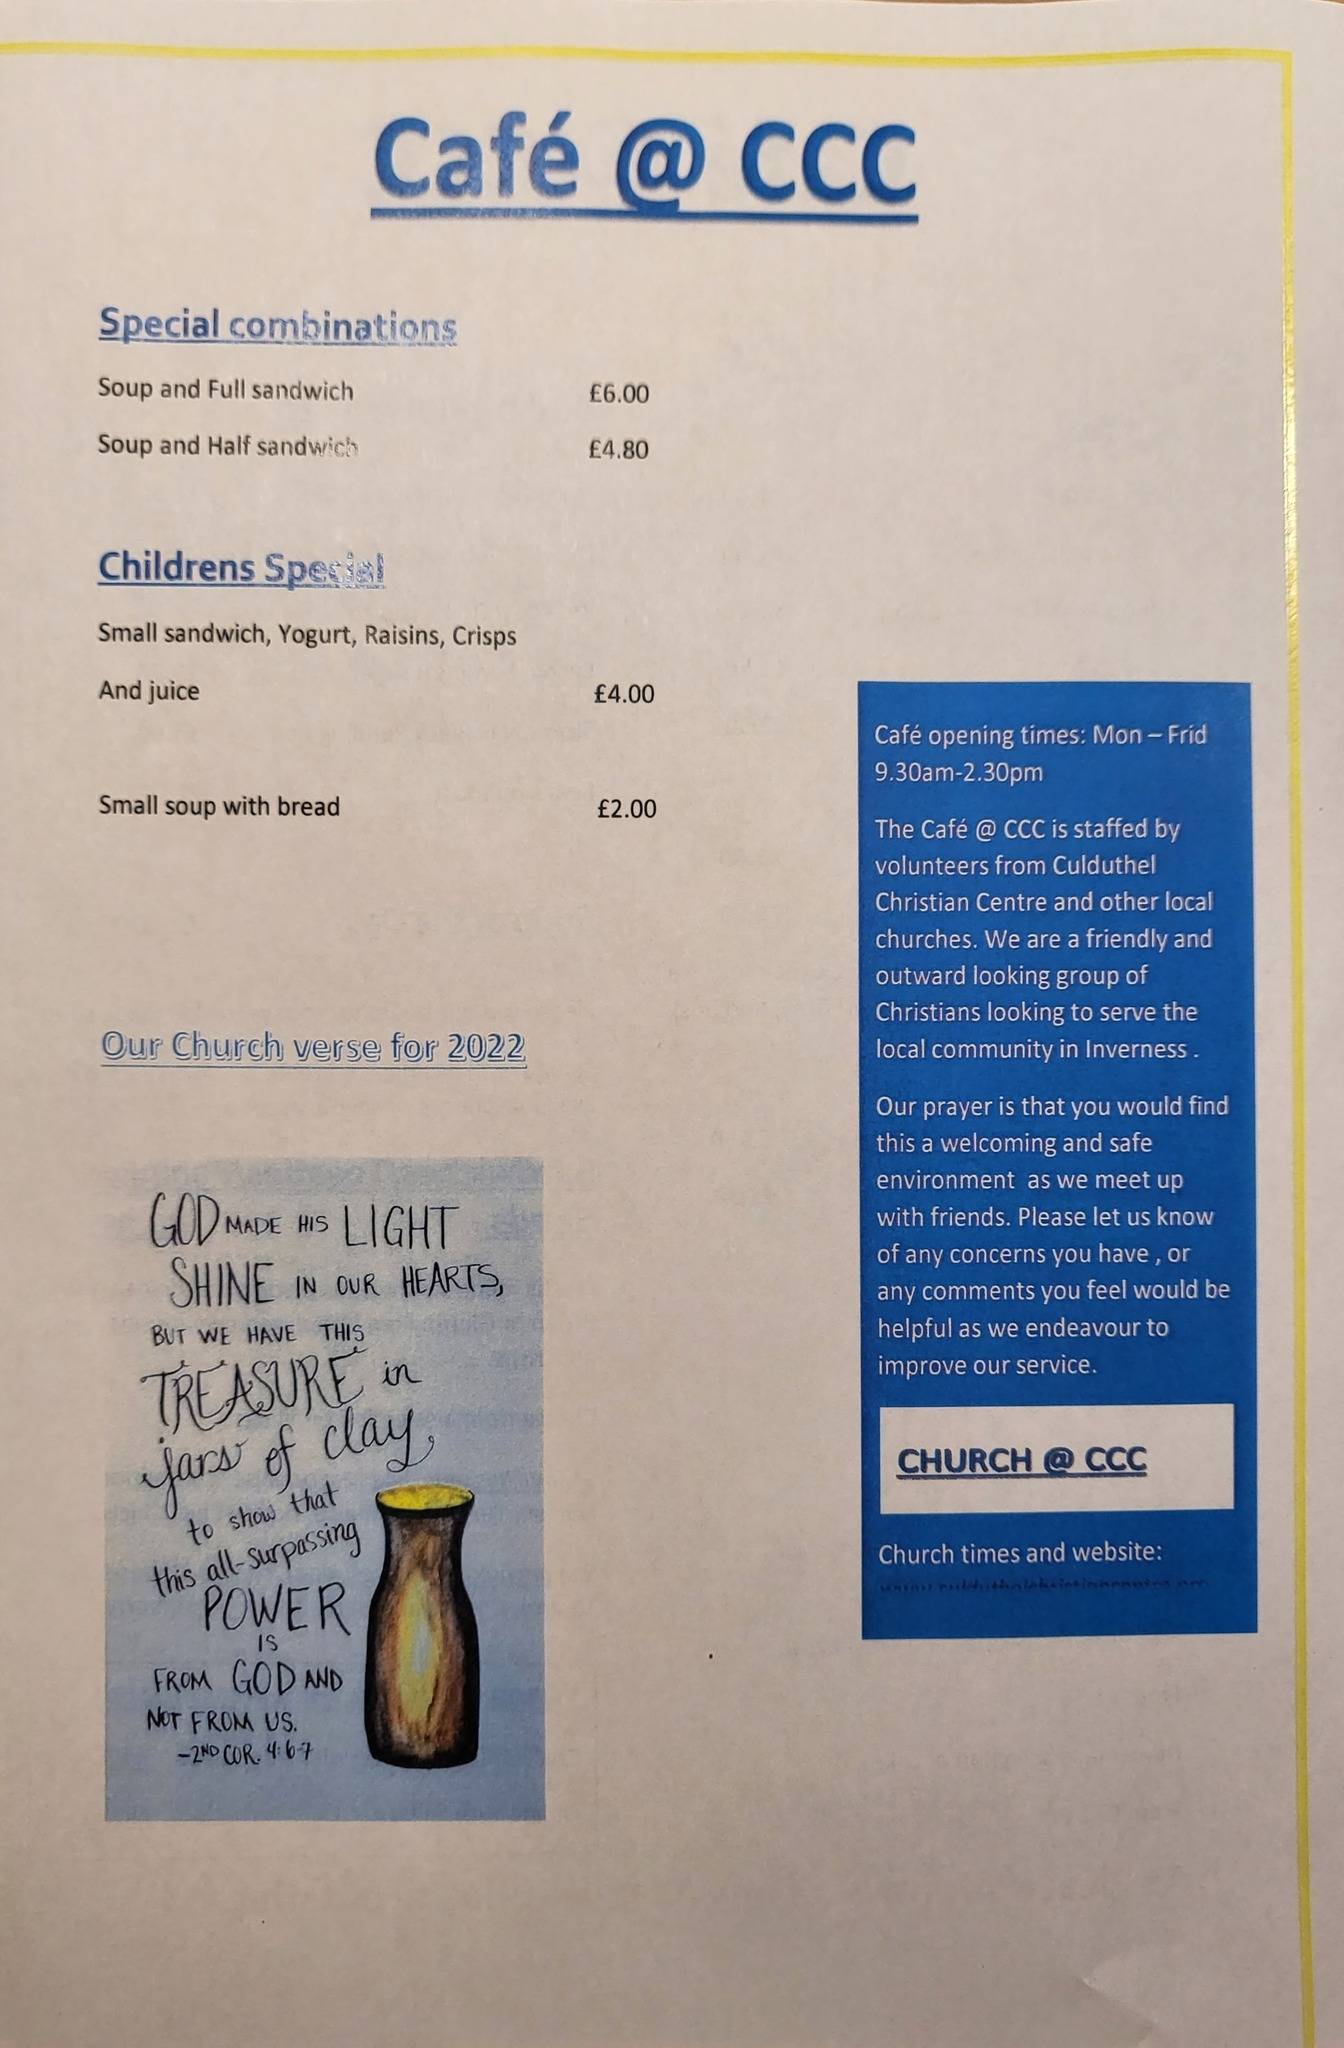 Café @ CCC
Special combinations
Soup and Full sandwich £6.00
Soup and Half sandwich £4.80
Childrens Special
Small sandwich, Yogurt, Raisins, Crisps
And juice £4.00
Small soup with bread £2.00
Our Church verse for 2022
GOD MADE HIS LIGHT
SHINE IN OUR HEARTS,
BUT WE HAVE THIS
TREASURE in
jars of clay,
to show that
this all-surpassing
POWER
IS
FROM GOD AND
NOT FROM US.
-2ND COR. 4:6-7
Café opening times: Mon – Frid
9.30am-2.30pm
The Café @ CCC is staffed by
volunteers from Culduthel
Christian Centre and other local
churches. We are a friendly and
outward looking group of
Christians looking to serve the
local community in Inverness .
Our prayer is that you would find
this a welcoming and safe
environment  as we meet up
with friends. Please let us know
of any concerns you have , or
any comments you feel would be
helpful as we endeavour to
improve our service.
CHURCH @ CCC
Church times and website: